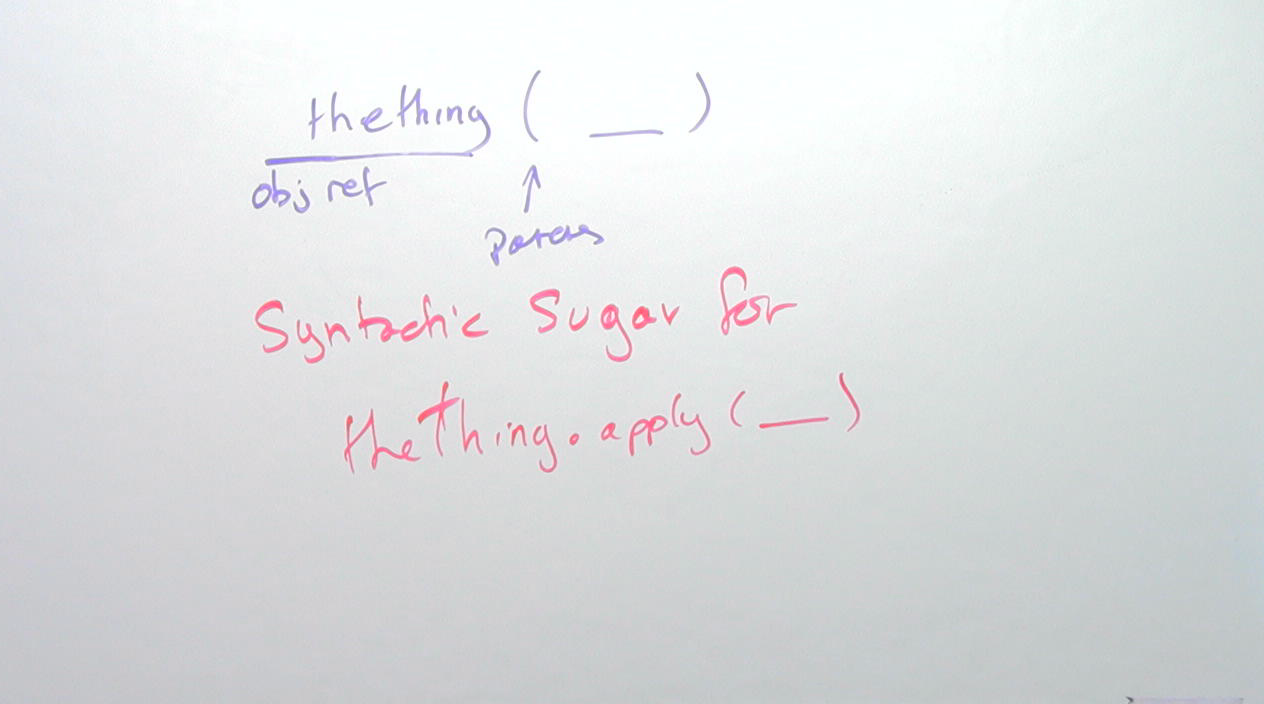 thething ( __ )
obj ref
Parens
Syntactic Sugar for
theThing.apply(__)